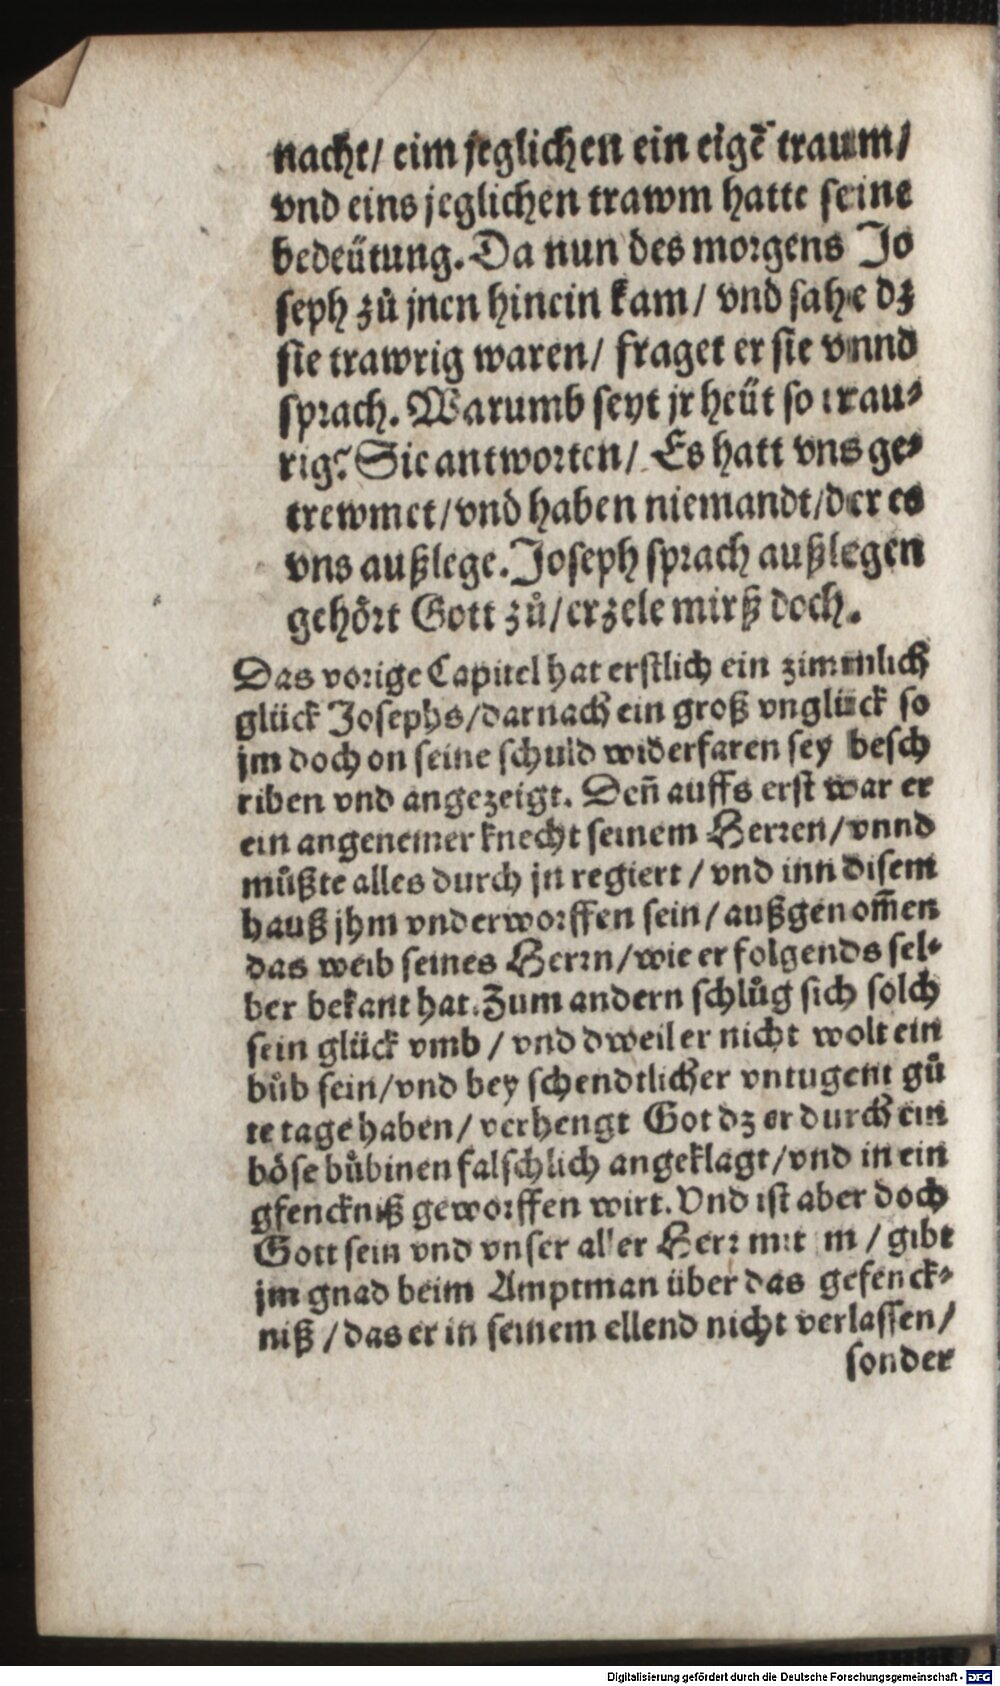 nacht/ eim jeglichen ein eigẽ traum/
vnd eins jeglichen trawm hatte seine
bedeütung. Da nun des morgens Jo
seph zů jnen hinein kam/ vnd sahe dz
sie trawrig waren/ fraget er sie vnnd
sprach. Warumb seyt jr heüt so trau-
rig? Sie antworten/ Es hatt vns ge-
trewmet/vnd haben niemandt/der es
vns außlege. Joseph sprach außlegen
gehört Gott zů/erzele mirß doch.
Das vorige Capitel hat erstlich ein zimmlich
glück Josephs/darnach ein groß vnglück so
jm doch on seine schuld widerfaren sey besch
riben vnd angezeigt. Deñ auffs erst war er
ein angenemer knecht seinem Herren/vnnd
můßte alles durch jn regiert/ vnd inn disem
hauß jhm vnderworffen sein/außgenom̃en
das weib seines Herrn/wie er folgends sel-
ber bekant hat. Zum andern schlůg sich solch
sein glück vmb/ vnd dweil er nicht wolt ein
bůb sein/vnd bey schendtlicher vntugent gů
te tage haben/ verhengt Got dz er durch ein
böse bůbinen falschlich angeklagt/vnd in ein
gfenckniß geworffen wirt. Vnd ist aber doch
Gott sein vnd vnser aller Herr mit m/ gibt
jm gnad beim Amptman über das gefenck-
niß/das er in seinem ellend nicht verlassen/
sonder
Digitalisierung gefördert durch die Deutsche Forschungsgemeinschaft - DFG